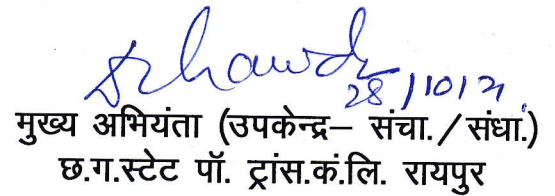 28/10/21
मुख्य अभियंता (उपकेन्द्र– संचा./संधा.)
छ.ग.स्टेट पॉ. ट्रांस.कं.लि. रायपुर